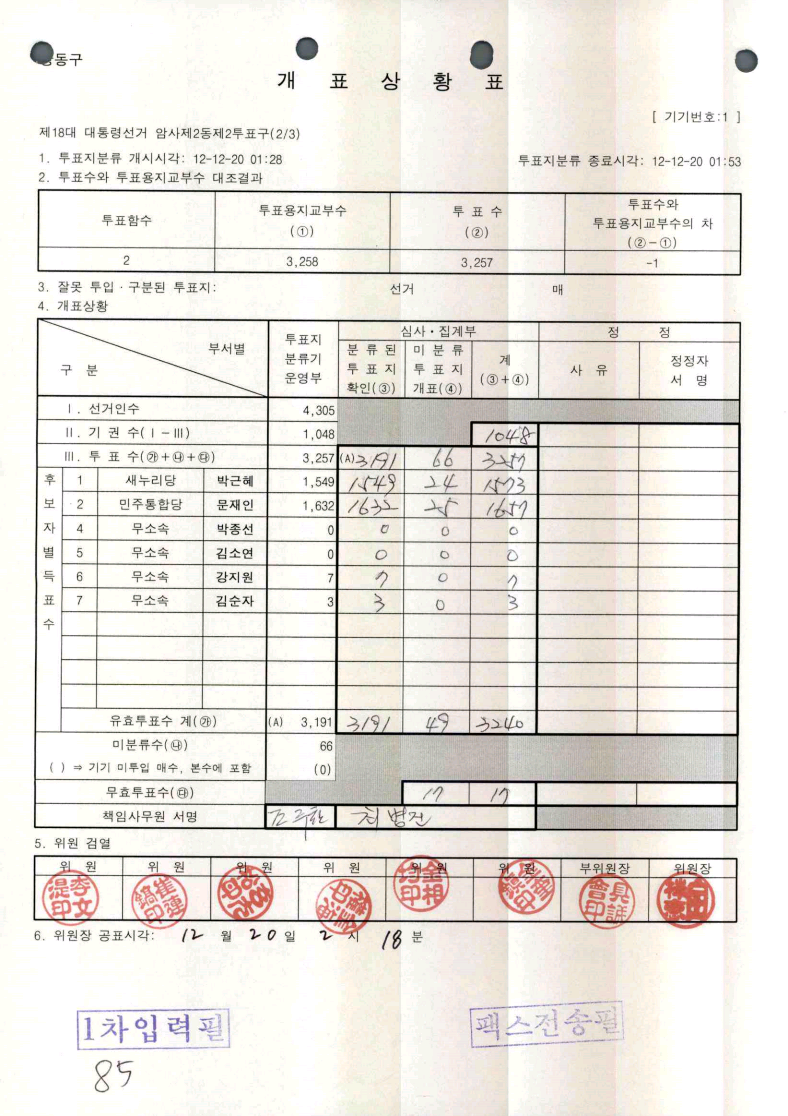 강동구
개 표 상 황 표
[ 기기번호:1 ]
제18대 대통령선거 암사제2동제2투표구(2/3)
1. 투표지분류 개시시각: 12-12-20 01:28 투표지분류 종료시각: 12-12-20 01:53
2. 투표수와 투표용지교부수 대조결과
투표함수 투표용지교부수 (①) 투 표 수 (②) 투표수와 투표용지교부수의 차 (②-①)
2 3,258 3,257 -1
3. 잘못 투입·구분된 투표지: 선거 매
4. 개표상황
구 분 부서별 투표지 분류기 운영부 심사·집계부 정 정
분 류 된 투 표 지 확인(③) 미 분 류 투 표 지 개표(④) 계 (③+④) 사 유 정정자 서 명
Ⅰ. 선거인수 4,305
Ⅱ. 기 권 수(Ⅰ-Ⅲ) 1,048 1048
Ⅲ. 투 표 수(㉮+㉯+㉰) 3,257 (A) 3191 66 3257
후보자별득표수
1 새누리당 박근혜 1,549 1549 24 1573
2 민주통합당 문재인 1,632 1632 25 1657
4 무소속 박종선 0 0 0 0
5 무소속 김소연 0 0 0 0
6 무소속 강지원 7 7 0 7
7 무소속 김순자 3 3 0 3
유효투표수 계(㉮) (A) 3,191 3191 49 3240
미분류수(㉯) 66
( ) ⇒ 기기 미투입 매수, 본수에 포함 (0)
무효투표수(㉰) 17 17
책임사무원 서명
5. 위원 검열
위 원 위 원 위 원 위 원 위 원 위 원 부위원장 위원장
6. 위원장 공표시각: 12 월 20 일 2 시 18 분
1차입력필 팩스전송필
85